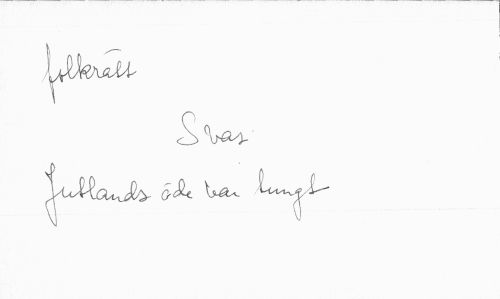 folkrätt
Svas
Jutlands öde var tungt